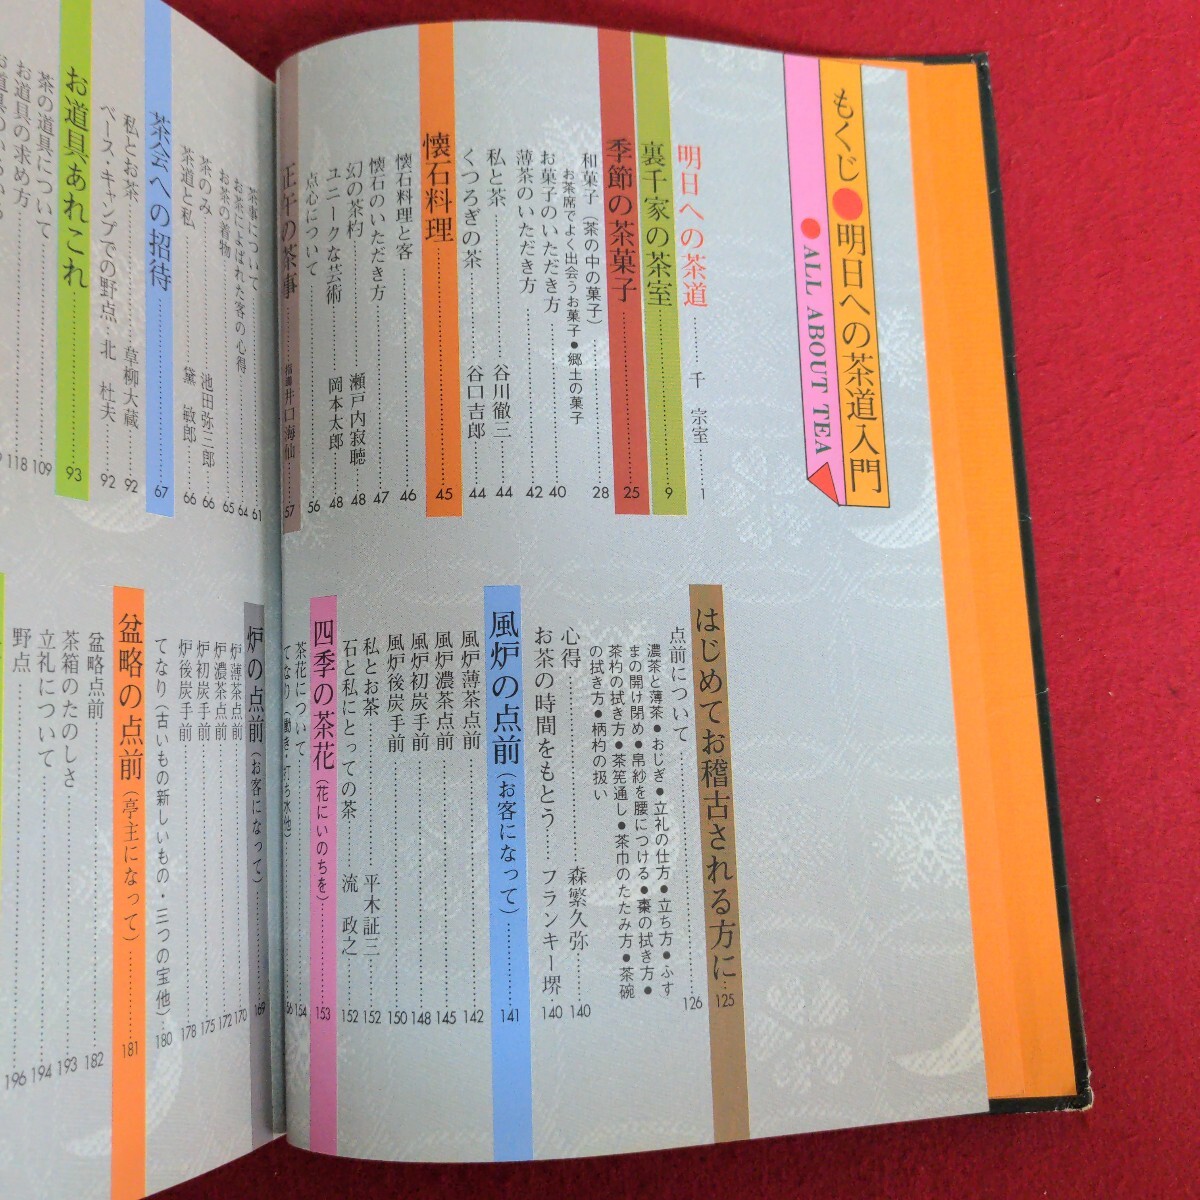 もくじ●明日への茶道入門
●ALL ABOUT TEA
明日への茶道…………千 宗室…………1
裏千家の茶室…………9
季節の茶菓子…………25
和菓子(茶の中の菓子)…………28
お茶席でよく出会うお菓子●郷土の菓子
お菓子のいただき方…………40
薄茶のいただき方…………42
私と茶…………谷川徹三…………44
くつろぎの茶…………谷口吉郎…………44
懐石料理…………45
懐石料理と客…………46
懐石のいただき方…………47
幻の茶杓…………瀬戸内寂聴…………48
ユニークな芸術…………岡本太郎…………48
点心について…………56
正午の茶事…………指導 井口海仙…………57
はじめてお稽古される方に…125
点前について…………126
濃茶と薄茶●おじぎ●立礼の仕方●立ち方●ふす
まの開け閉め●帛紗を腰につける●棗の拭き方●
茶杓の拭き方●茶筅通し●茶巾のたたみ方●茶碗
の拭き方●柄杓の扱い
心得…………森繁久弥…………140
お茶の時間をもとう……フランキー堺…………140
風炉の点前(お客になって)…………141
風炉薄茶点前…………142
風炉濃茶点前…………145
風炉初炭手前…………148
風炉後炭手前…………150
私とお茶…………平木証三…………152
石と私にとっての茶…………流 政之…………152
四季の茶花(花にいのちを)…………153
茶花について…………154
てなり(働き・打ち水他)…………166
茶事について…………61
お茶によばれた客の心得…………64
お茶の着物…………65
茶のみ…………池田弥三郎…………66
茶道と私…………黛 敏郎…………66
茶会への招待…………67
私とお茶…………草柳大蔵…………92
ベース・キャンプでの野点 北 杜夫…………92
お道具あれこれ…………93
茶の道具について…………109
お道具の求め方…………118
炉の点前(お客になって)…………169
炉薄茶点前…………170
炉濃茶点前…………172
炉初炭手前…………175
炉後炭手前…………178
てなり(古いもの新しいもの・三つの宝他)…………180
盆略の点前(亭主になって)…………181
盆略点前…………182
茶箱のたのしさ…………193
立礼について…………194
野点…………196